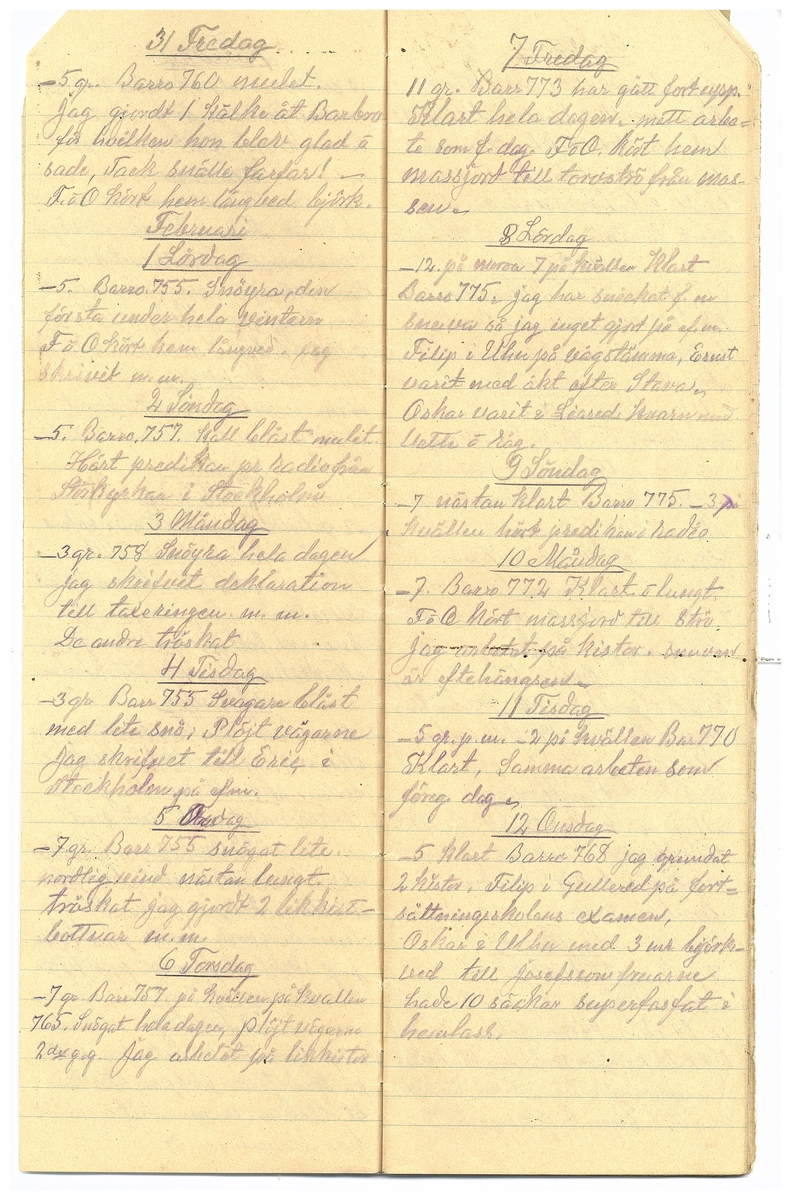 31 Fredag
–5 gr. Barro 760 mulet.
Jag gjordt 1 Kälke åt Barbro
för hvilken hon blev glad å
sade, Tack snälle farfar! –
F. å O kört hem långved björk.
Februari
1 Lördag
–5. Barro. 755. Snöyra, den
första under hela vintern
F å O kört hem långved. jag
skrivit m.m.
2 Söndag
–5. Barro. 757. Kall blåst mulet.
Hört predikan pr radio från
Storkyrkan i Stockholm
3 Måndag
–3 gr. 758 Snöyra hela dagen
jag skrifvet deklaration
till taxeringen m. m.
De andre tröskat
4 Tisdag
–3 gr Barr 755 Svagare blåst
med lite snö; Plöjt vägarne
Jag skrifvet till Eric, i
Stockholm, på efm.
5 Onsdag
–7 gr. Barr 755 snögat lite.
nordlig vind nästan lungt.
tröskat jag gjordt 2 likkist-
bottnar m.m.
6 Torsdag
–7 gr. Barr 757 på kvällen på kvällen
765. Snögat hela dagen, plöjt vägarne
2 gg. Jag arbetet på likkistor
7 Fredag
11 gr. Barr 773 har gått fort upp.
Klart hela dagen. mitt arbe=
te som f. dag. F å O. kört hem
massjord till torvströ från mos-
sen.
8 Lördag
–12. på moron 7 på kvällen Klart
Barro 775. jag har snickat f. m
så jag inget gjort på ef.m.
Filip i Ulhn på vägstämma, Ernst
varit med åkt efter
Oskar varit i Leared Kvarn med
å råg.
9 Söndag
–7 nästan Klart Barro 775. –3 på
Kvällen hört predikan i radio
10 Måndag
–7. Barro 772 Klart å lungt.
F å O kört massjord till strö.
Jag arbetet på kistor. snuvan
är efterhängsen –
11 Tisdag
–5 gr. p. m. –2 på kvällen Bar 770
Klart, Samma arbeten som
föreg dag.
12 Onsdag
–5 klart Barro 768 jag grundat
2 kistor, Filip i Gullered på fort=
sättningsskolans examen,
Oskar i Ulhn med 3 mr björk-
ved till Josefssonfruarne
hade 10 säckar superfosfat i
hemlass.